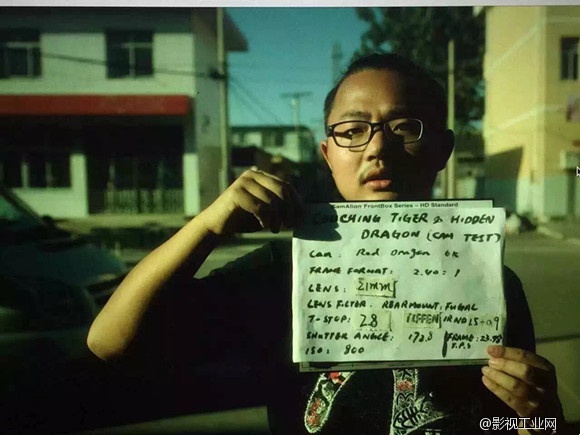 CamAlign FrontBox Series – HD Standard
COUCHING TIGER & HIDDEN
DRAGON (CAM TEST)
CAM: Red Dragon 6K
FRAME FORMAT: 2.40:1
LENS: 21mm
LENS FILTER: REARMOUNT: FUGAL
T-STOP: 2.8 TIFFEN IRND 1.5+0.9
SHUTTER ANGLE: 172.8 FRAME: 23.98
F.P.S
ISO: 800
@影视工业网